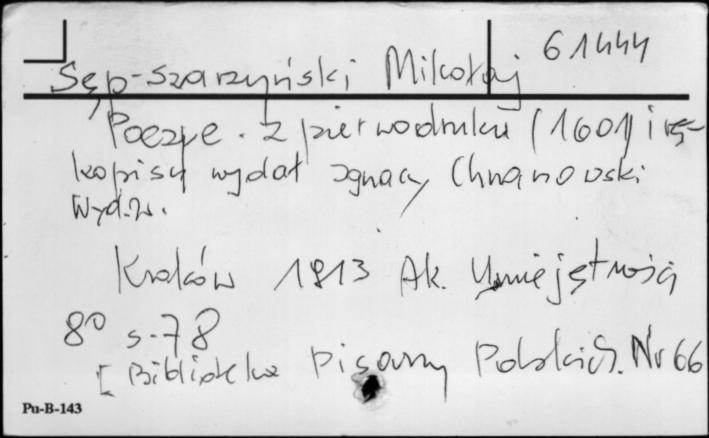 61444
Sęp-Szarzyński Mikołaj
Poezye. Z pierwodruku (1601) i rę-
kopisu wydał Ignacy Chrzanowski
Wyd. 2.
Kraków 1913 Ak. Umiejętności
8° s. 78
[Biblioteka Pisarzy Polskich. Nr 66
Pu-B-143